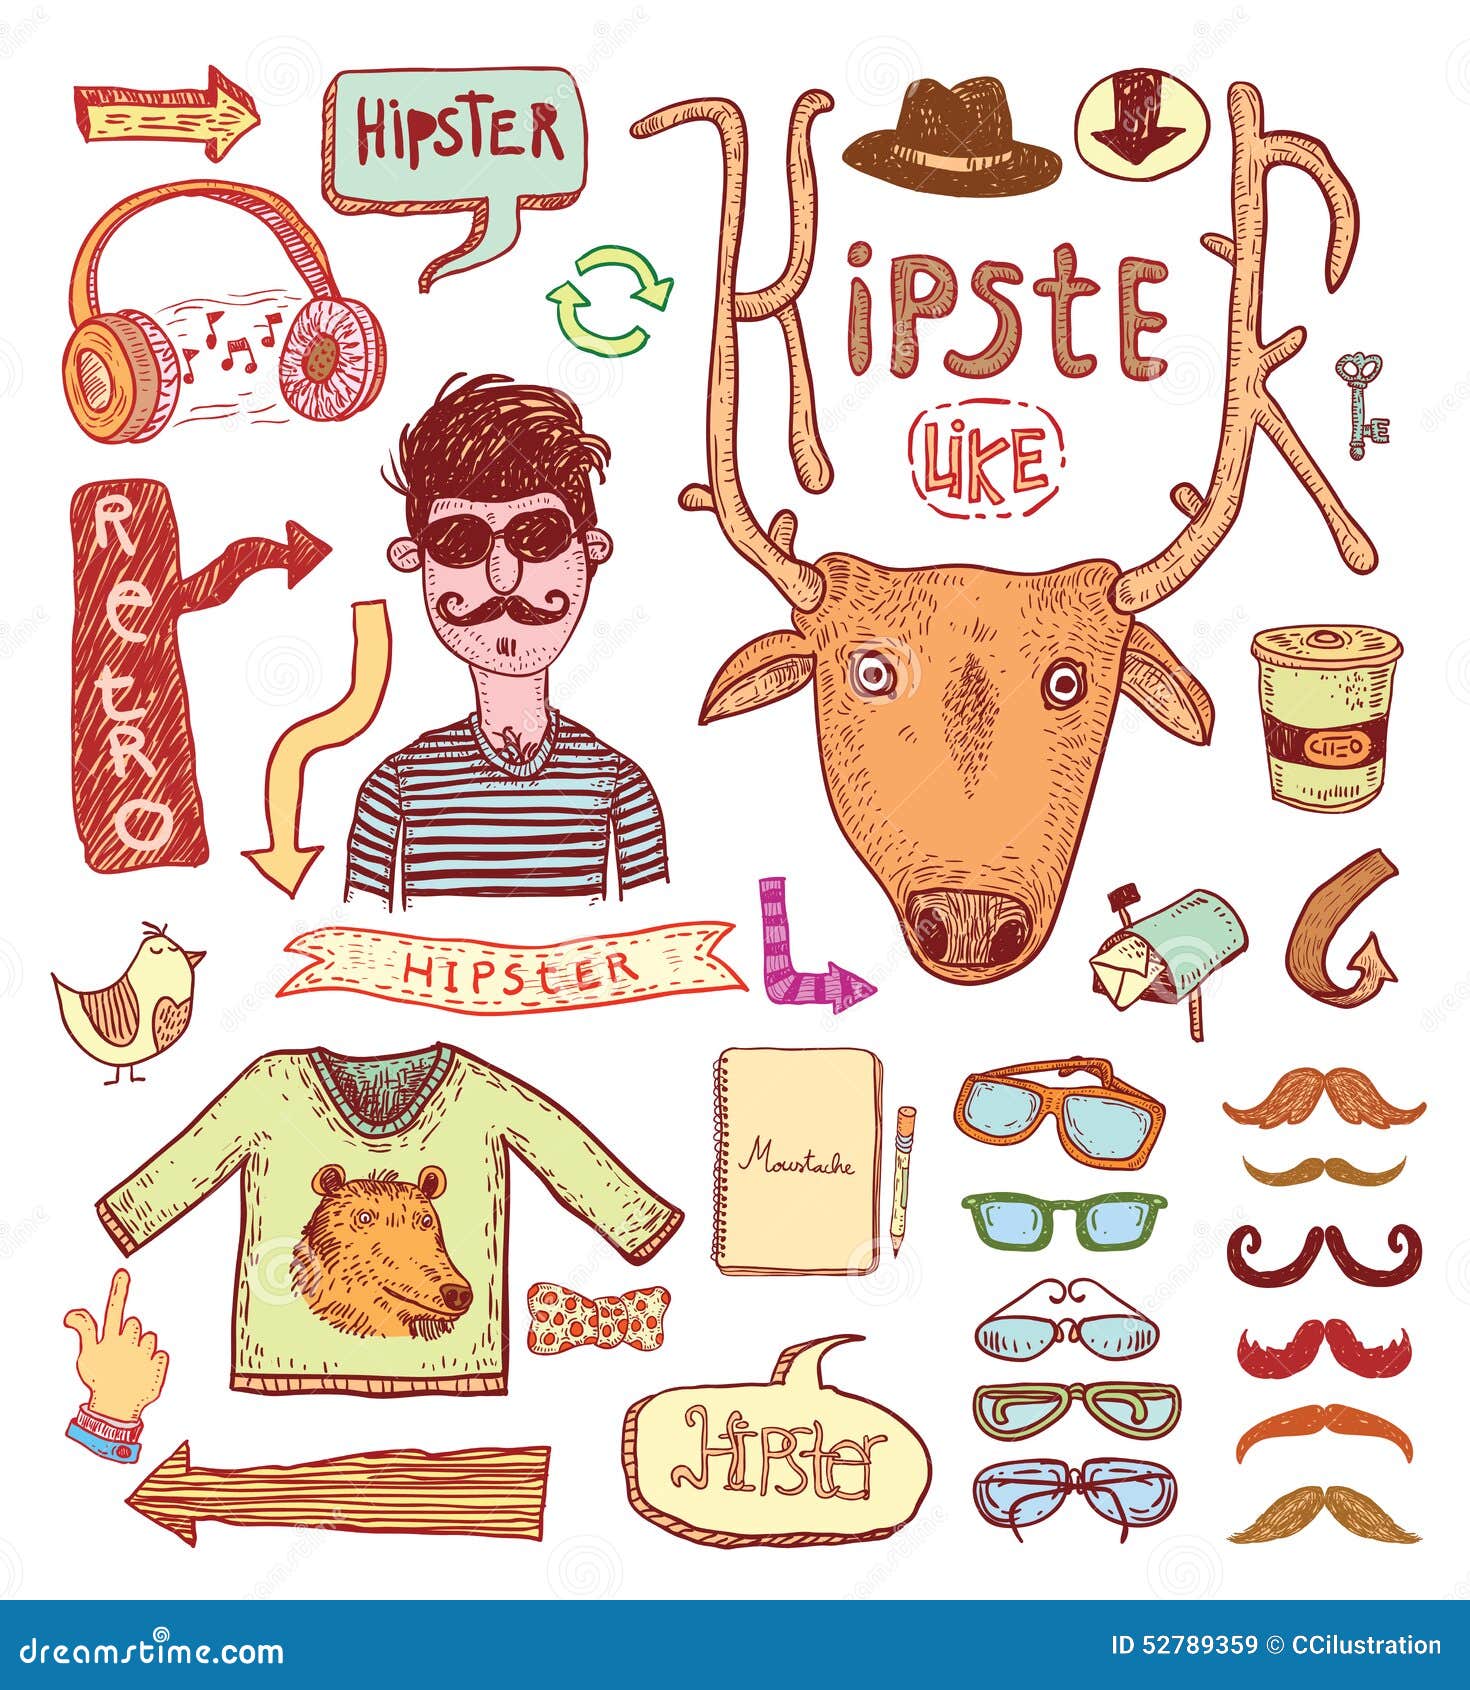 HipSTER
HipstER
LiKE
RetRO
HIPSTER
Moustache
HipSter
dreamstime.com
ID 52789359 © CCilustration